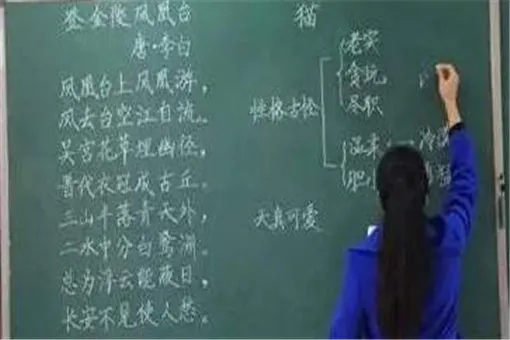 登金陵凤凰台
唐·李白
凤凰台上凤凰游，
凤去台空江自流。
吴宫花草埋幽径，
晋代衣冠成古丘。
三山半落青天外，
二水中分白鹭洲。
总为浮云能蔽日，
长安不见使人愁。
猫
性格古怪
老实
贪玩
尽职
温柔
冷淡
胆小
天真可爱